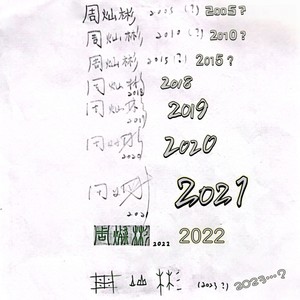 周灿彬 2005(?) 2005?
周灿彬 2010(?) 2010?
周灿彬 2015(?) 2015?
周灿彬 2018 2018
周灿彬 2019 2019
周灿彬 2020 2020
周灿彬 2021 2021
周燦彬 2022 2022
山彬 (2023?) 2023…?